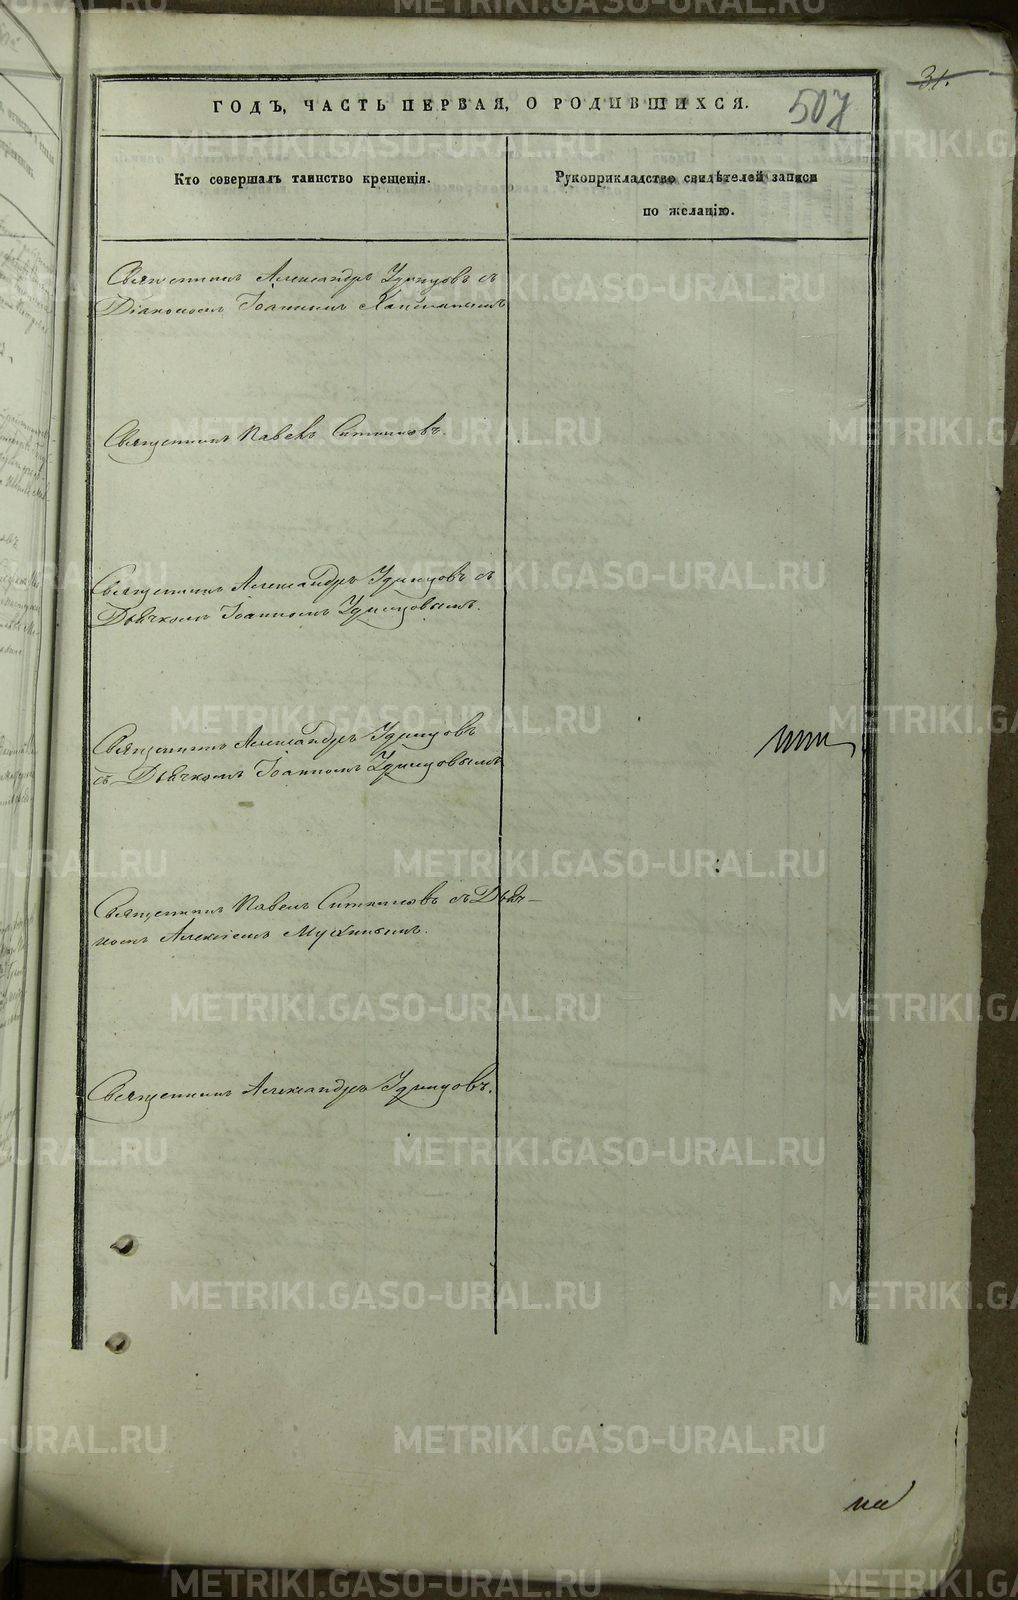 31.
507
ГОДЪ, ЧАСТЬ ПЕРВАЯ, О РОДИВШИХСЯ.
Кто совершалъ таинство крещенія.
Рукоприкладство свидѣтелей записи
по желанію.
Священникъ Александръ Удинцовъ съ
Діакономъ Іоанномъ
Священникъ Павелъ Ситниковъ.
Священникъ Александръ Удинцовъ съ
Дьячкомъ Іоанномъ Удинцовымъ.
Священникъ Александръ Удинцовъ
съ Дьячкомъ Іоанномъ Удинцовымъ
Священникъ Павелъ Ситниковъ съ Дьяч-
комъ Алексіемъ Мухинымъ.
Священникъ Александръ Удинцовъ.
METRIKI.GASO-URAL.RU